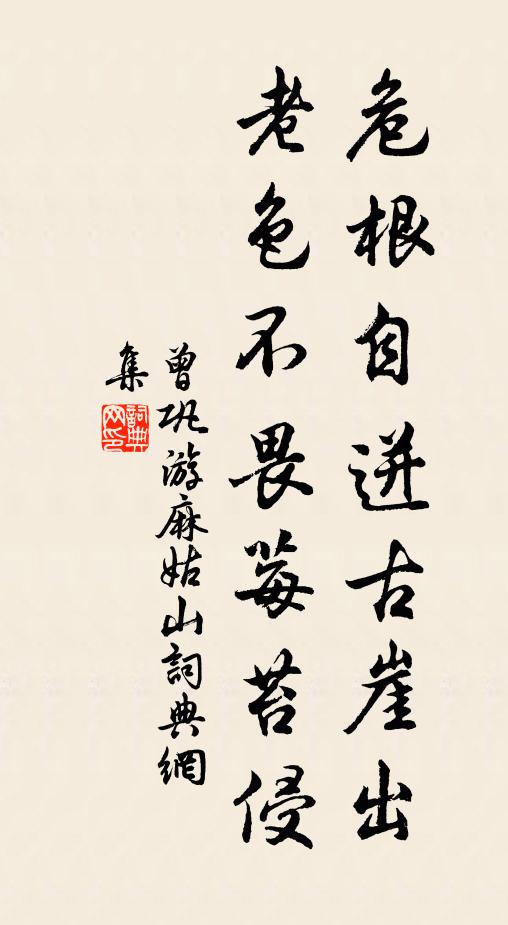 危根自迸古崖出
老色不畏莓苔侵
曾巩游麻姑山詞典網
集
詞典網印